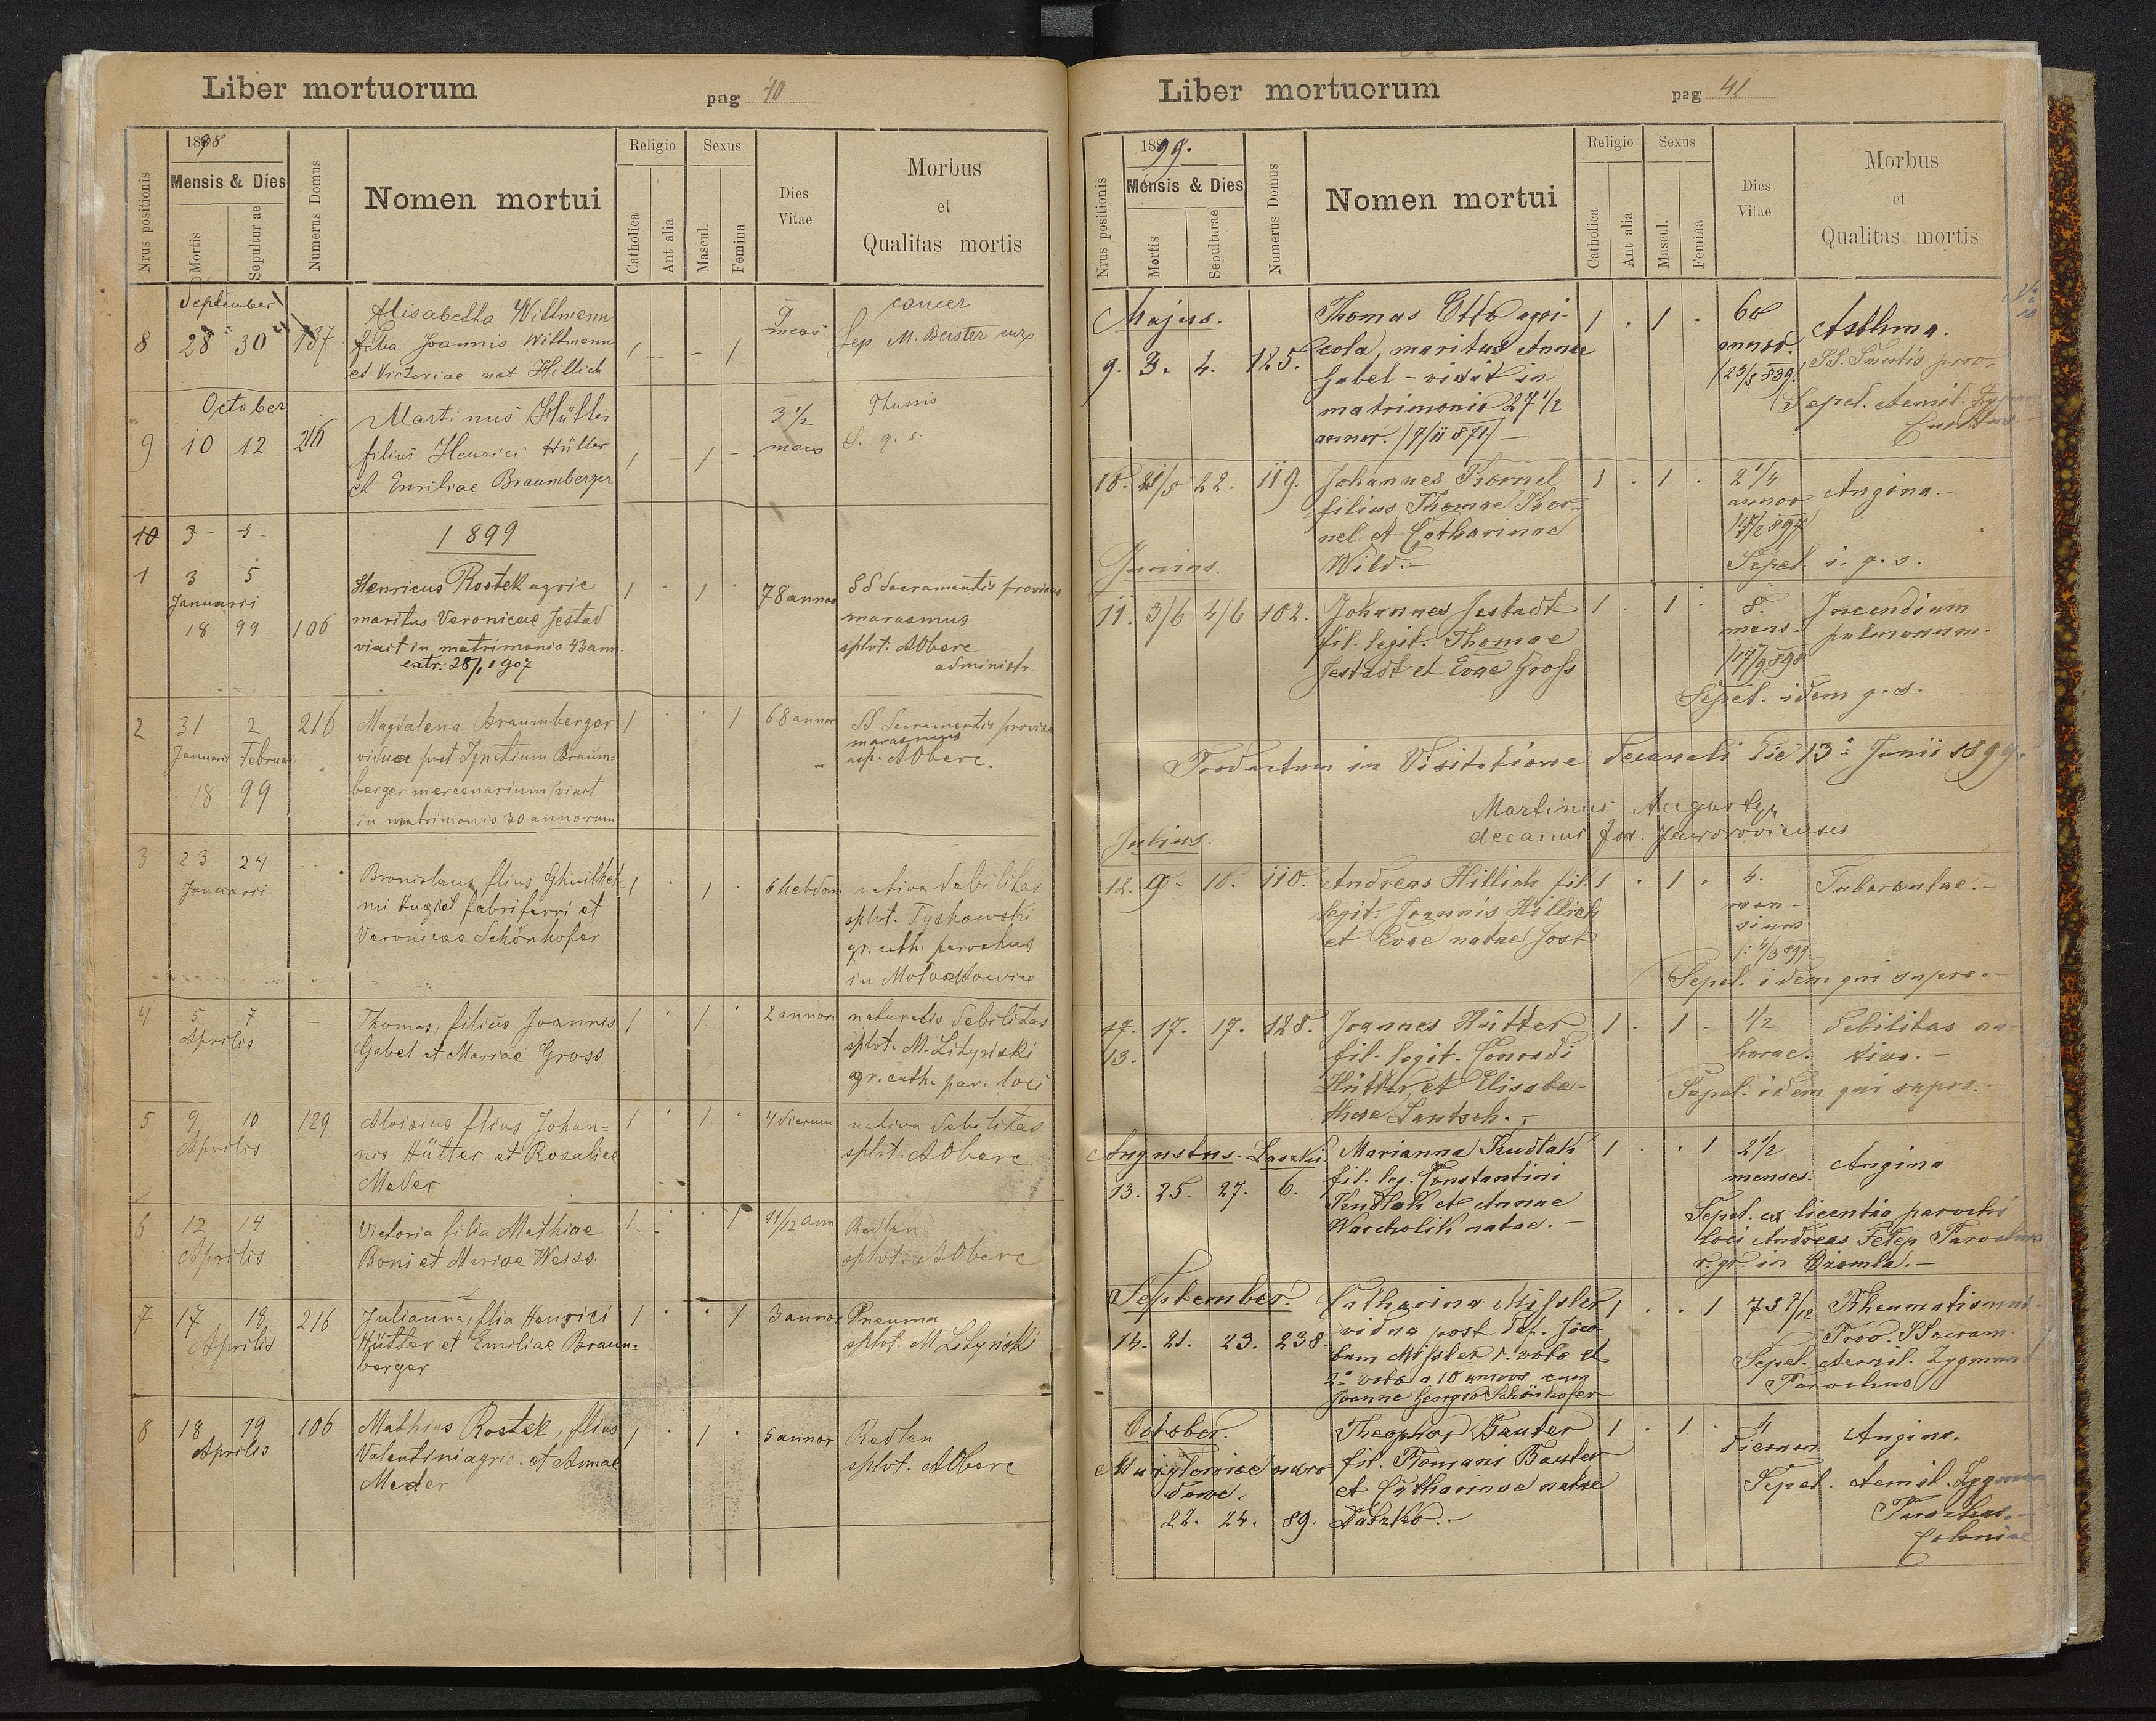 Liber mortuorum
pag 40
1898
Mensis & Dies
Nrus positionis
Mortis
Sepulturae
Numerus Domus
Nomen mortui
Religio
Catholica
Aut alia
Sexus
Mascul.
Femina
Dies
Vitae
Morbus
et
Qualitas mortis
September
8 28 30 137
Elisabetha Wiltmann
filia Joannis Wiltmann
et Victoriae nat Hillich
1 - - 1
9
mens
cancer
Sep M. Beister
October
9 10 12 216
Martinus Hütter
filius Henrici Hütter
et Emiliae Braumberger
1 - 1 -
3 1/2
mens
Thussis
S. q. s.
10 3 - 5 -
1899
1 3 5
Januarii
18 99 106
Henricus Rostek agric
maritus Veronicae Jestad
vixit in matrimonio 43 ann.
extr. 28/1 907
1 . 1 .
78 annor
SS Sacramentis provisus
marasmus
splvt. AObere
administr.
2 31 2 216
Januarii Februar
18 99
Magdalena Braumberger
vidua post Ignatium Braum=
berger mercenarium vixit
in matrimonio 30 annorum
1 . . 1
68 annor
SS Sacramentis provisa
marasmus
sep. AObere.
3 23 24
Januarii
Bronislaus filius
fabri ferri et
Veronicae Schönhofer
1 . 1 .
6 hebdom
nativa debilitas
splvt. Tychowski
gr. cath. parochus
in
4 5 7 -
Aprilis
Thomas, filius Joannis
Gabel et Mariae Gross
1 . 1 .
2 annor
naturalis debilitas
splvt. M. Litynski
gr. cath. par. loci
5 9 10 129
Aprilis
Aloisius filius Johan=
nis Hütter et Rosaliae
Meder
1 . 1 .
4 dierum
nativa debilitas
splvt. AObere.
6 12 14
Aprilis
Victoria filia Mathiae
Boni et Mariae Weiss.
1 . . 1
11/12 ann
Redlen
splvt. AObere
7 17 18 216
Aprilis
Julianna, filia Henrici
Hütter et Emiliae Braum=
berger
1 . . 1
3 annor
Pneuma
splvt. M Litynski
8 18 19 106
Aprilis
Mathias Rostek, filius
Valentini agric. et Annae
Meder
1 . 1 .
5 annor
Redlen
splvt. AObere
Liber mortuorum
pag 41
1899.
Mensis & Dies
Nrus positionis
Mortis
Sepulturae
Numerus Domus
Nomen mortui
Religio
Catholica
Aut alia
Sexus
Mascul.
Femina
Dies
Vitae
Morbus
et
Qualitas mortis
Majus.
9. 3. 4. 125.
Thomas Otto agri-
cola, maritus Annae
Gabel - vixit in
matrimonio 27 1/2
annor. /7/11 871/ -
1 . 1 .
60
annor.
/23/8 839/
Asthma.
Sepel. Aemil.
10. 21/5 22. 119.
Johannes Kornel
filius Thomae Kor-
nel et Catharinae
Wild. -
1 . 1 .
2 1/4
annor
Angina. -
Sepel. i. q. s.
Junius.
11. 3/6 4/6 102.
Johannes Jestadt
fil. legit. Thomae
Jestadt et Evae Gross
1 . 1 .
8.
mens.
/17/9 898
Incendium
pulmonum.
Sepel. idem q. s.
Productum in Visitatione decanali die 13a Junii 1899.
Martinus Augustyn
decanus for. Javoroviensis
Julius.
12. 9. 10. 110.
Andreas Hillich fil.
legit. Joannis Hillich
et Evae natae Jost
1 . 1 .
4.
men-
sium
/: 4/3 899
Tuberculae. -
Sepel. idem qui supra. -
17. 17. 19. 128.
13.
Joannes Hütter
fil. legit. Conradi
Hütter et Elisabe-
thae Lautsch. -
1 . 1 .
1/2
horae.
debilitas na-
tiva. -
Sepel. idem qui supra. -
Augustus. Laszki.
13. 25. 27. 6.
Marianna Kudlak
fil. leg. Constantini
Kudlak et Annae
Warcholik natae. -
1 . . 1
2 1/2
menses.
Angina
Sepel. ex licentia parochi
loci Andreas Parochus
r. gr. in
September.
14. 21. 23. 238.
Catharina Missler
vidua post def. Jaco-
bum Missler 1. voto et
2o voto a 10 annos cum
Joanne Georgio Schönhofer
1 . . 1
75 7/12
Rheumatismus.
Prov. SSacram.
Sepel. Aemil. Zygmunt
Parochus
October.
22. 24. 89.
Theophor Bauter
fil. Romani Bauter
et Catharinae natae
Daszko. -
1 . 1 .
4
dierum
Angina.
Sepel. Aemil.
Parochus. -
Coloniae